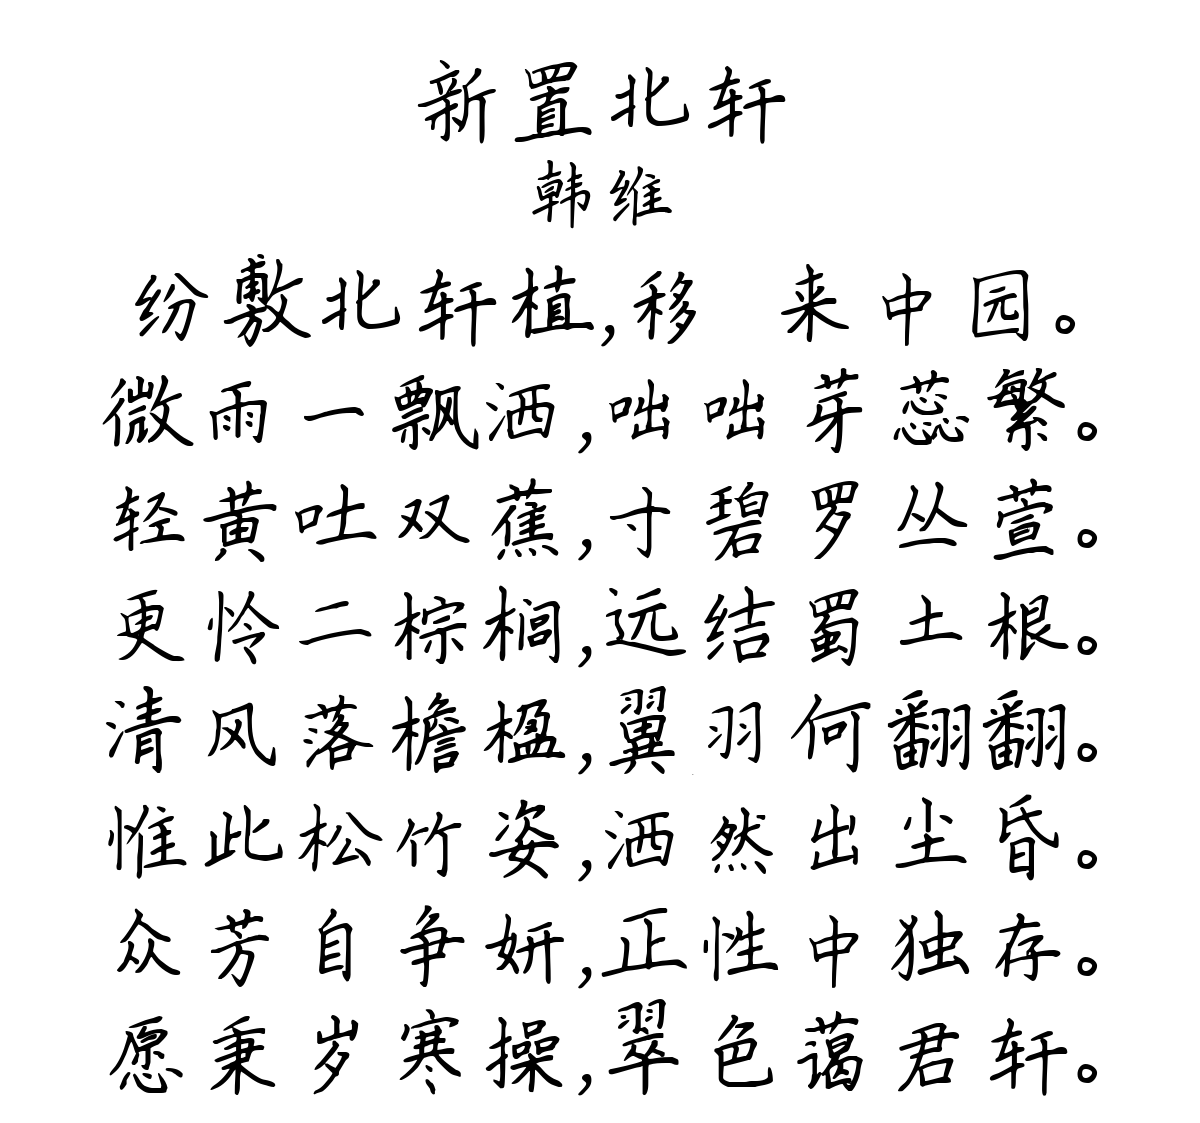 新置北轩
韩维
纷敷北轩植,移 来中园。
微雨一飘洒,咄咄芽蕊繁。
轻黄吐双蕉,寸碧罗丛萱。
更怜二棕榈,远结蜀土根。
清风落檐楹,翼羽何翻翻。
惟此松竹姿,洒然出尘昏。
众芳自争妍,正性中独存。
愿秉岁寒操,翠色蔼君轩。